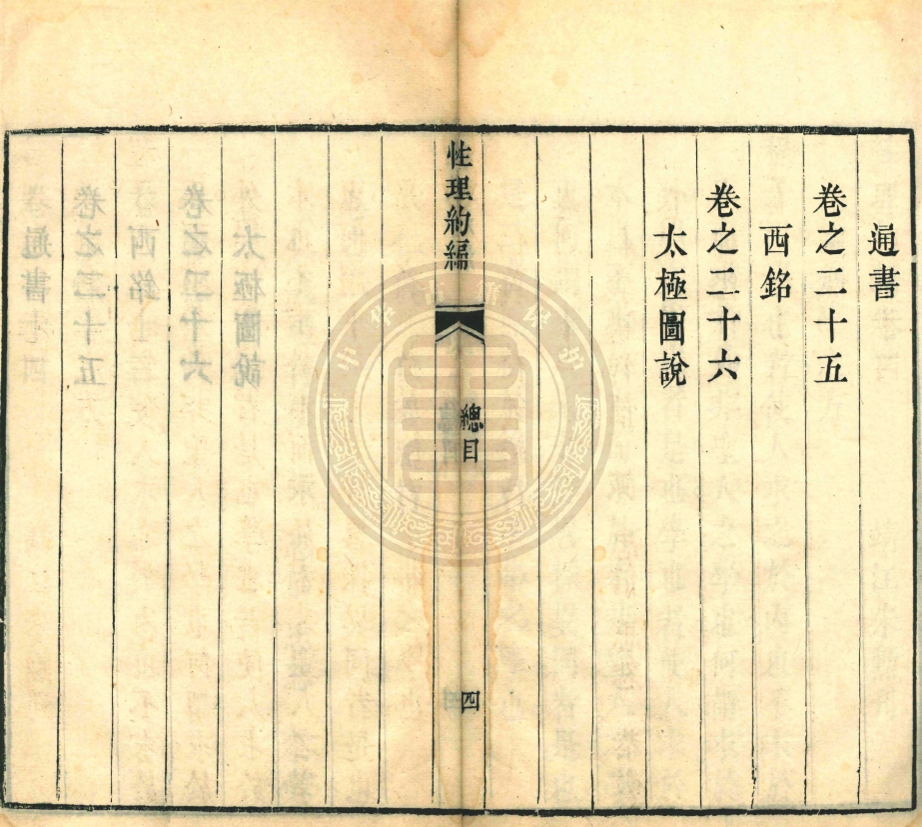 通書
卷之二十五
西銘
卷之二十六
太極圖說
性理約編
總目
四